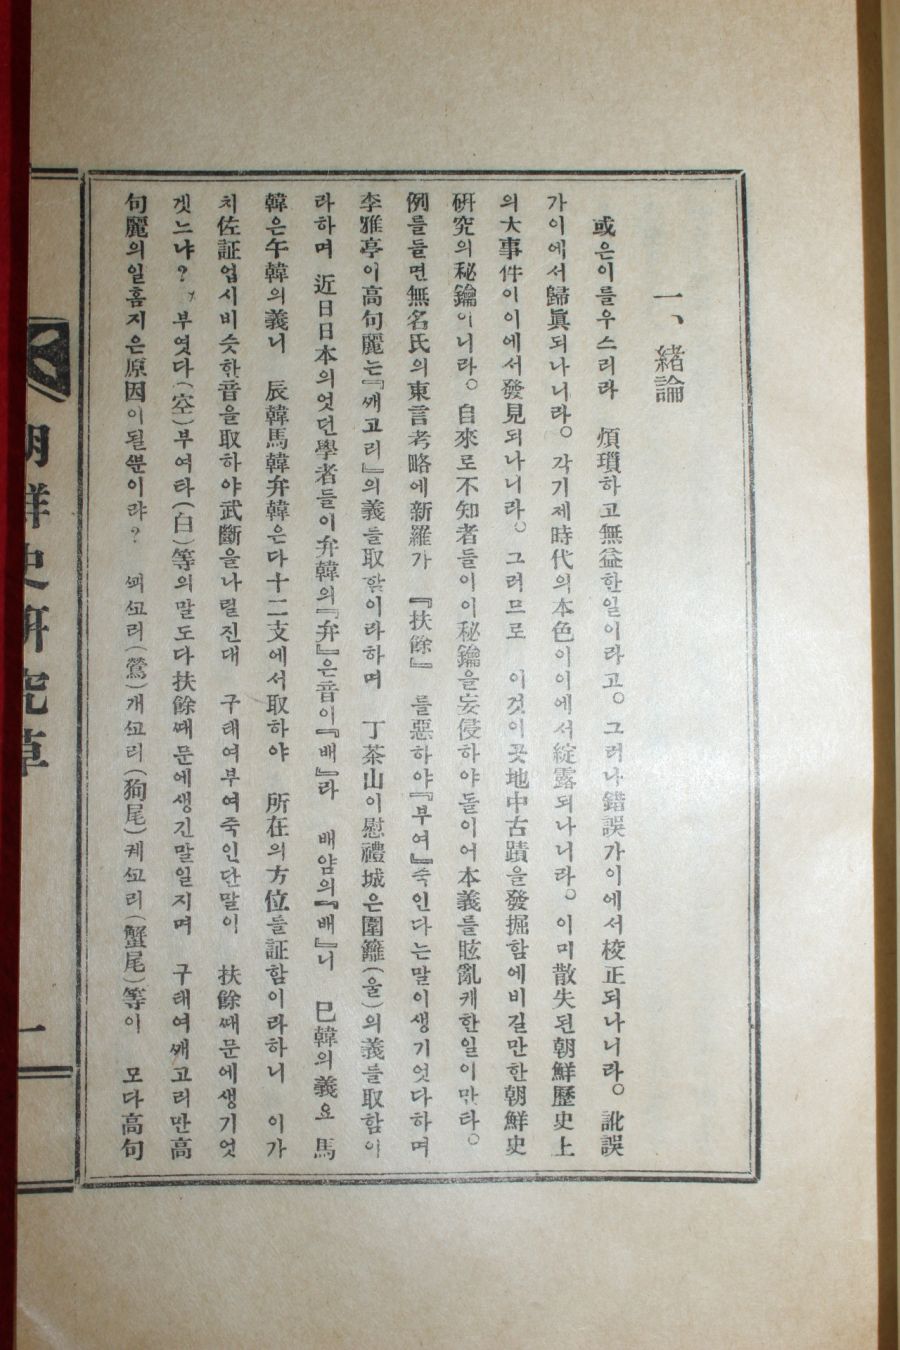 一、緒論
或은이를우스리라 煩瓆하고無益한일이라고。그러나錯誤가이에서校正되나니라。訛誤
가이에서歸眞되나니라。각기제時代의本色이이에서綻露되나니라。이미散失된朝鮮歷史上
의大事件이이에서發見되나니라。그러므로 이것이곳地中古蹟을發掘함에비길만한朝鮮史
硏究의秘鑰이니라。自來로不知者들이이秘鑰을妄侵하야들이어本義를眩亂케한일이만타。
例를들면無名氏의東言考略에新羅가 『扶餘』 를惡하야『부여』죽인다는말이생기엇다하며
李雅亭이高句麗는『깨고리』의義를取함이라하며 丁茶山이慰禮城은圍籬(울)의義를取함이
라하며 近日日本의엇던學者들이弁韓의『弁』은音이『배』라 배얌의『배』니 巳韓의義요 馬
韓은午韓의義니 辰韓馬韓弁韓은다十二支에서取하야 所在의方位를証함이라하니 이가
치佐証업시비슷한音을取하야武斷을나릴진대 구태여부여죽인단말이 扶餘때문에생기엇
겟느냐? 부엿다(空)부여라(白)等의말도다扶餘때문에생긴말일지며 구태여깨고리만高
句麗의일홈지은原因이될뿐이랴? 꾀꼬리(鶯)개꼬리(狗尾)게꼬리(蟹尾)等이 모다高句
朝鮮史硏究草
一